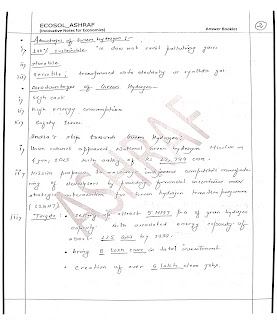 ECOSOL_ASHRAF
(Innovative Notes for Economics)
Answer Booklet
Advantages of Green hydrogen :-
i) 100% sustainable : does not emit polluting gases
ii) storable
iii) versatile, transformed into electricity or synthetic gas
Disadvantages of Green Hydrogen
i) High cost
ii) High energy consumption
iii) Safety issues
India's step towards Green Hydrogen:
i) Union cabinet approved National Green hydrogen Mission on
4 Jan, 2023 with outlay of Rs 19,744 crore.
ii) Mission proposes
of electrolysers by financial incentives under
strategic interventions Green hydrogen transition programme
(SIGHT)
iii) Target : Setting up atleast 5 MMT p.a of green hydrogen
capacity with associated energy capacity of
about 125 GW by 2030.
Bring 8 lakh crore in total investment
Creation of over 6 lakh clean jobs.
ASHRAF